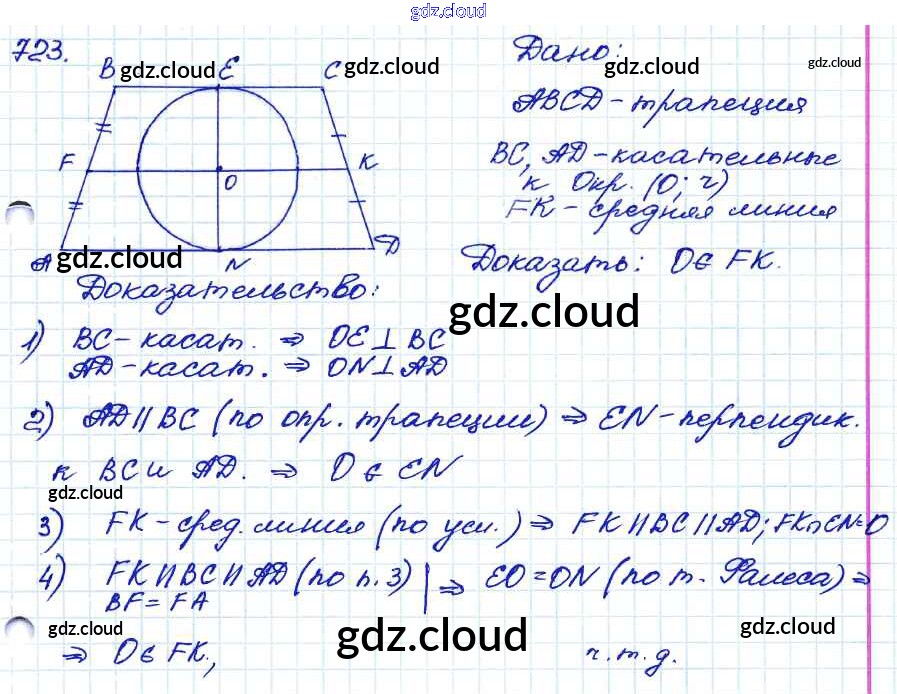 gdz.cloud
723.
B gdz.cloud E C gdz.cloud
F K
O
A gdz.cloud N D
Дано: gdz.cloud
gdz.cloud
ABCD - трапеция
BC, AD - касательные
к Окр. (O; r)
FK - средняя линия
Доказать: O ∈ FK.
Доказательство:
gdz.cloud
1) BC - касат. ⇒ OE ⊥ BC
AD - касат. ⇒ ON ⊥ AD
2) AD || BC (по опр. трапеции) ⇒ EN - перпендик.
к BC и AD. ⇒ O ∈ EN
gdz.cloud gdz.cloud
3) FK - сред. линия (по усл.) ⇒ FK || BC || AD; FK ∩ EN = O
4) FK || BC || AD (по п. 3) | ⇒ EO = ON (по т. Фалеса) ⇒
BF = FA
gdz.cloud gdz.cloud gdz.cloud
⇒ O ∈ FK, ч.т.д.